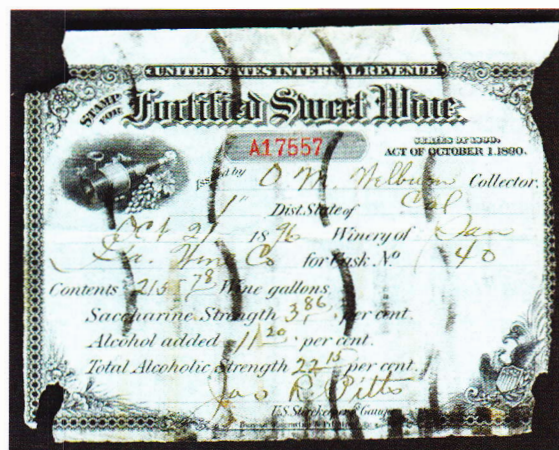 UNITED STATES INTERNAL REVENUE
STAMP FOR
Fortified Sweet Wine.
A17557
SERIES OF 1890.
ACT OF OCTOBER 1.1890.
Issued by O. M. Welburn Collector.
1st Dist. State of Cal
Oct 21 1896 Winery of
Co for Cask No 40
Contents 215 78 Wine gallons.
Saccharine Strength 3,86 per cent.
Alcohol added 11 20 per cent.
Total Alcoholic Strength 22 15 per cent.
Jas R. Pitts
U.S. Storekeeper & Gauger